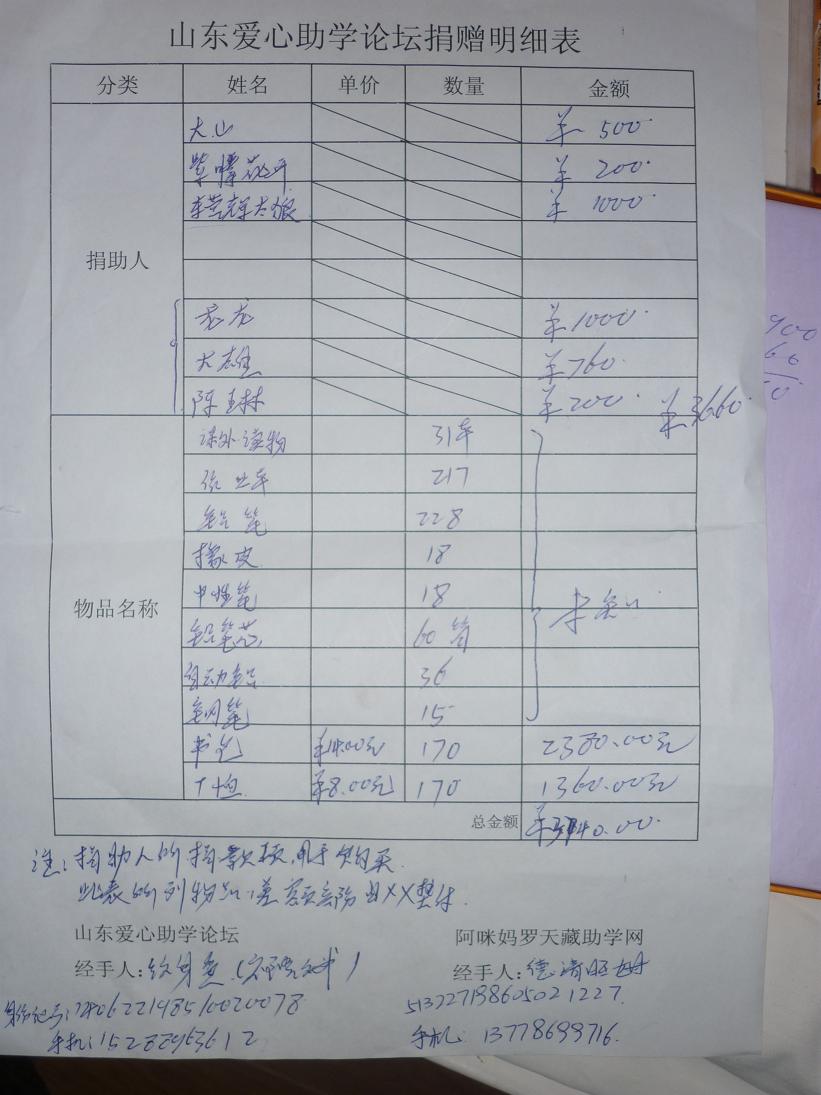 山东爱心助学论坛捐赠明细表
分类 姓名 单价 数量 金额
捐助人
大山 ¥ 500.
紫 花开 ¥ 200.
¥ 1000.
¥ 1000.
大雄 ¥ 760.
陈 林 ¥ 200. ¥ 3660.
物品名称
课外读物 31本
练业本 217
铅笔 228
橡皮 18
中性笔 18
铅笔芯 60筒
自动铅 36
钢笔 15
书包 ¥14.00元 170 2380.00元
T恤 ¥8.00元 170 1360.00元
总金额 ¥3740.00.
注:捐助人的捐款项,用于购买
此表所列物品,差额部份由XX垫付.
山东爱心助学论坛 阿咪妈罗天藏助学网
经手人: 经手人:德清旺姆
身份证号: 513727198605021227.
手机:15282963612 手机: 13778699716.